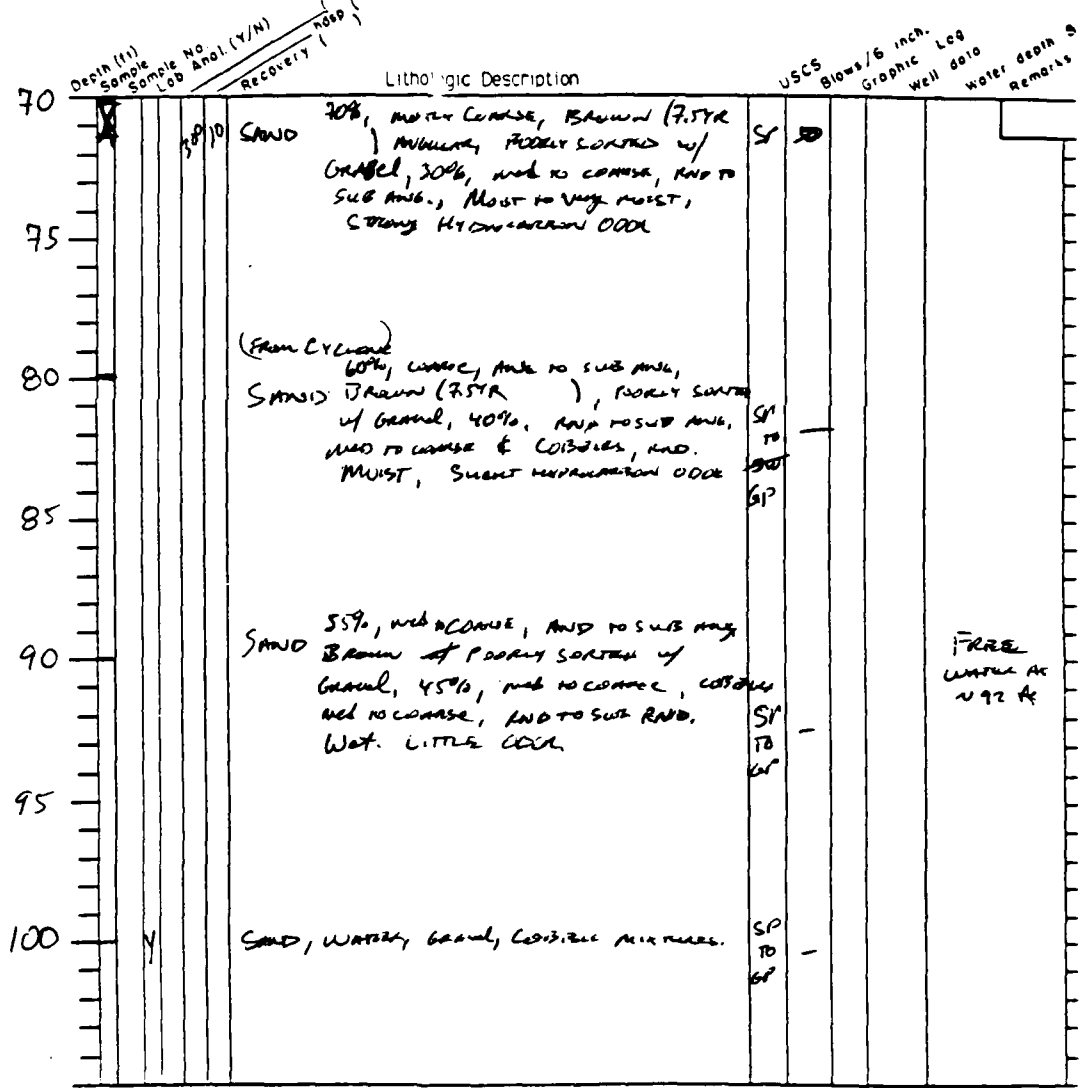 Depth (ft) Sample Sample No. Lab Anal. (Y/N) Recovery ( ) hdsp ( ) Lithologic Description USCS Blows/6 inch. Graphic Log Well data Water depth Remarks
70
70%, MOSTLY COARSE, BROWN (7.5YR
SAND ) ANGULAR, POORLY SORTED w/ SP 50
GRAVEL, 30%, MED TO COARSE, RND TO
SUB ANG., MOIST TO VERY MOIST,
STRONG HYDROCARBON ODOR
75
(FROM CYCLONE)
60%, COARSE, ANG TO SUB ANG,
80
SAND BROWN (7.5YR ), POORLY SORTED
w/ GRAVEL, 40%, RND TO SUB ANG, SP
MED TO COARSE & COBBLES, RND. TO -
MOIST, SLIGHT HYDROCARBON ODOR GW
GP
85
55%, MED TO COARSE, RND TO SUB ANG
SAND BROWN POORLY SORTED w/
90
GRAVEL, 45%, MED TO COARSE, COBBLES
MED TO COARSE, RND TO SUB RND. SP
WET. LITTLE ODOR TO -
GP
FREE
WATER AT
~ 92 ft
95
100 Y SAND, WATER, GRAVEL, COBBLE MIXTURES. SP
TO -
GP